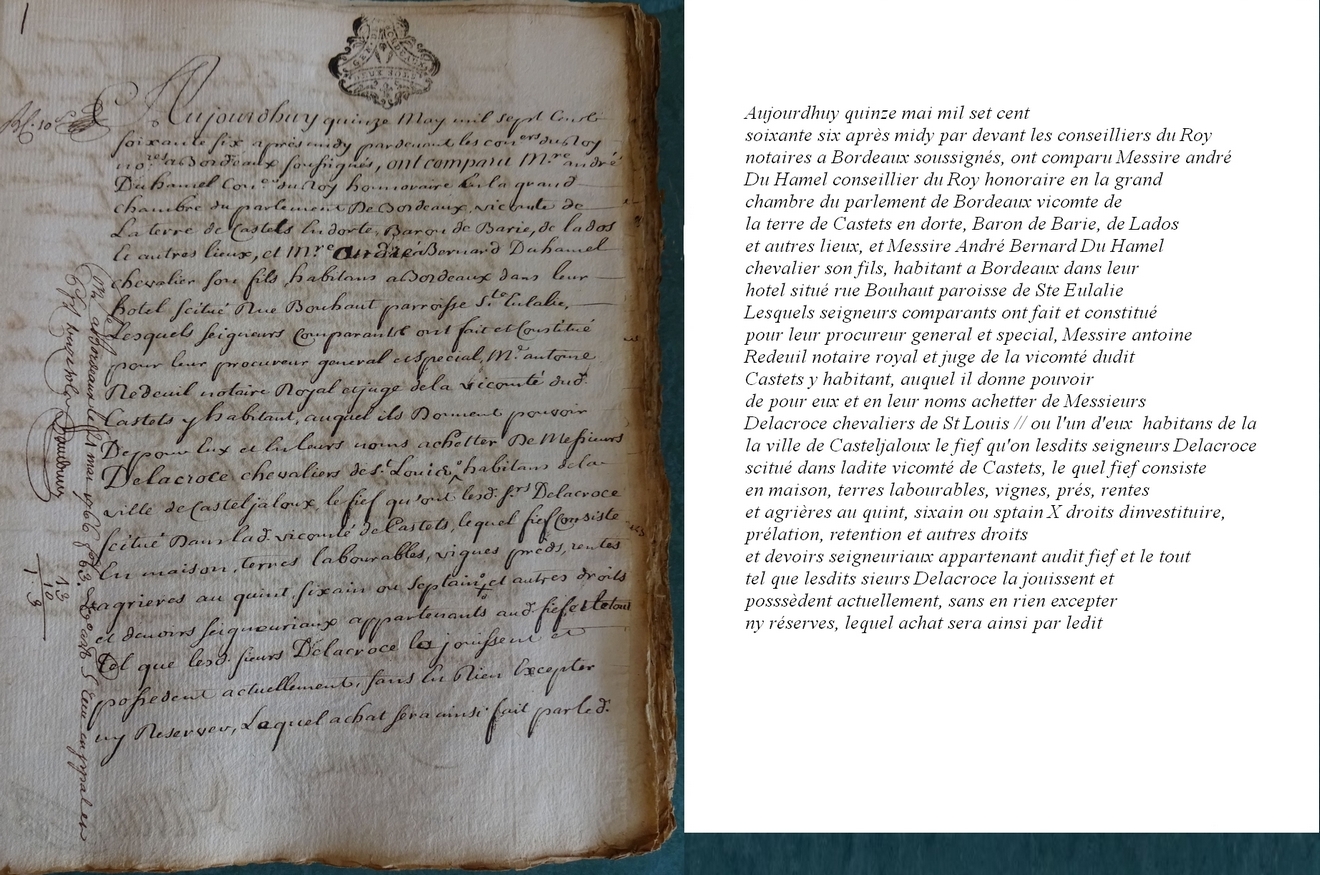 1
GEN. DE BORDEAUX
DEUX SOLS
Aujourdhuy quinze May mil sept Cent
soixante six apres midy pardevant les con.ers du Roy
no.res a Bordeaux soussignés, ont comparu M.re andré
Du hamel Con.er du Roy honnoraire En la grand
chambre du parlement De Bordeaux, vicomte de
La terre de Castets Endorte, Baron de Barie, de lados
et autres lieux, et M.re André Bernard Duhamel
chevalier son fils, habitans a Bordeaux dans leur
hotel scitué Rue Bouhaut parroisse S.te Eulalie,
Lesquels seigneurs Comparants ont fait et Constitué
pour leur procureur general et special, M.e antoine
Redeuil notaire Royal et juge dela vicomté dud.
Castets y habitant, auquel ils Donnent pouvoir
De pour Eux et En leurs noms achetter De Messieurs
Delacroce chevaliers de s.t Louis, habitans dela
ville de Casteljaloux, le fief qu'ont lesd. s.rs Delacroce
scitué Dans lad. vicomté de Castets, lequel fief Consiste
En maison, terres labourables, vignes, préds, rentes
agrieres au quint, sixain ou septain, et autres droits
et devoirs seigneuriaux appartenants aud. fief et le tout
tel que lesd. sieurs Delacroce les jouissent et
possedent actuellement, sans En Rien Excepter
ny Reserver, Lequel achat sera ainsi fait par led.
13
10
Aujourdhuy quinze mai mil set cent
soixante six après midy par devant les conseilliers du Roy
notaires a Bordeaux soussignés, ont comparu Messire andré
Du Hamel conseillier du Roy honoraire en la grand
chambre du parlement de Bordeaux vicomte de
la terre de Castets en dorte, Baron de Barie, de Lados
et autres lieux, et Messire André Bernard Du Hamel
chevalier son fils, habitant a Bordeaux dans leur
hotel situé rue Bouhaut paroisse de Ste Eulalie
Lesquels seigneurs comparants ont fait et constitué
pour leur procureur general et special, Messire antoine
Redeuil notaire royal et juge de la vicomté dudit
Castets y habitant, auquel il donne pouvoir
de pour eux et en leur noms achetter de Messieurs
Delacroce chevaliers de St Louis // ou l'un d'eux habitans de la
la ville de Casteljaloux le fief qu'on lesdits seigneurs Delacroce
scitué dans ladite vicomté de Castets, le quel fief consiste
en maison, terres labourables, vignes, prés, rentes
et agrières au quint, sixain ou sptain X droits dinvestituire,
prélation, retention et autres droits
et devoirs seigneuriaux appartenant audit fief et le tout
tel que lesdits sieurs Delacroce la jouissent et
posssèdent actuellement, sans en rien excepter
ny réserves, lequel achat sera ainsi par ledit